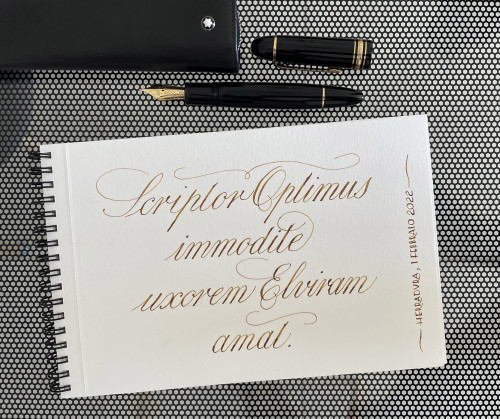 Scriptor Optimus
immodite
uxorem Elviram
amat.
HERRADURA, 1 FEBBRAIO 2022